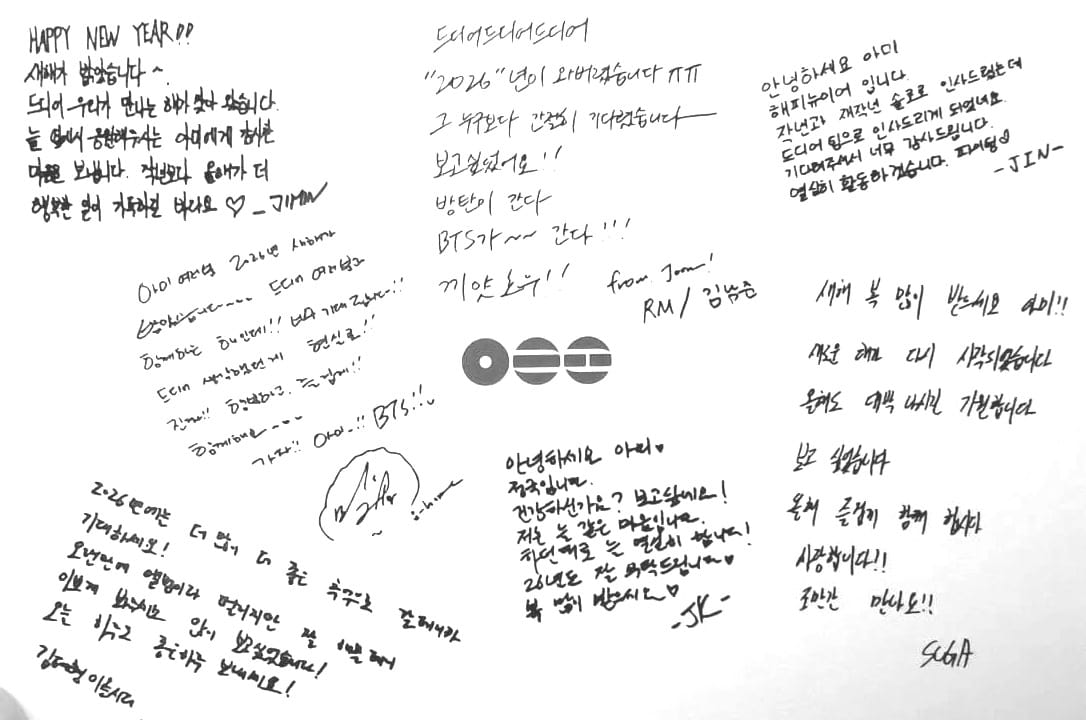 HAPPY NEW YEAR!!
새해가 밝았습니다 ~
드디어 우리가 만나는 해가 찾아 왔습니다.
늘 옆에서 응원해주시는 아미에게 감사한
마음을 보냅니다. 작년보다 올해가 더
행복한 일이 가득하길 바라요 ♡ - JIMIN
드디어드디어드디어
"2026"년이 와버렸습니다 ㅠㅠ
그 누구보다 간절히 기다렸습니다
보고싶었어요!!
방탄이 간다
BTS가 ~~ 간다!!!
끼얏호우!!
from. Joon!
RM / 김남준
안녕하세요 아미
해피뉴이어 입니다.
작년과 재작년 솔로로 인사드렸는데
드디어 팀으로 인사드리게 되었네요.
기다려주셔서 너무 감사드립니다.
열심히 활동하겠습니다. 파이팅♡
-JIN-
아미 여러분 2026년 새해가
밝았습니다.... 드디어 여러분과
함께하는 해인데!! 너무 기대됩니다!!
드디어 생각했던게 현실로!!
진짜!! 행복하고, 즐겁게!!
함께해요....
가자!! 아미..!! BTS!!
j-hope
새해 복 많이 받으세요 아미!!
새로운 해가 다시 시작되었습니다
올해도 대박 나시길 기원합니다
보고 싶었습니다
올해 즐겁게 함께 합시다
사랑합니다!!
조만간 만나요!!
SUGA
안녕하세요 아미♥
정국입니다.
건강하신가요? 보고싶네요!
저는 늘 같은 마음입니다.
하던대로 늘 열심히 합니다!
26년도 잘 부탁드립니다♥
복 많이 받으세요♡
-JK-
2026년에는 더 많이 더 좋은 추억으로 갈테니까
기대하세요!
오랜만에 앨범이라 떨리지만 잘
이쁘게 봐주시요 많이 보고싶었습니다!
오늘 하루도 좋은하루 보내세요!
김태형